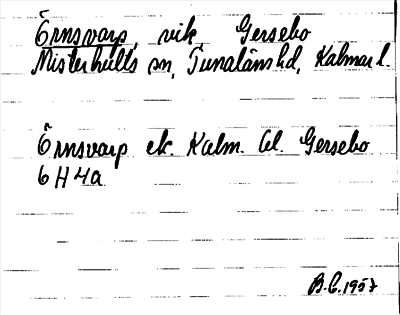 Örnsvarp, vik, Gersebo
Misterhults sn, Tunaläns hd, Kalmar l.
Örnsvarp ek. Kalm. Gersebo
6 H 4a
1957